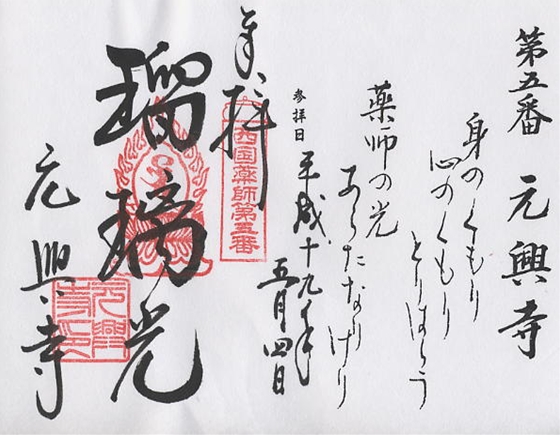 第五番 元興寺
身のくもり
心のくもり
とりはらう
薬師の光
あらたなりけり
参拝日 平成十九年
五月四日
奉拝
西国薬師第五番
瑠璃光
元興寺
元興寺印